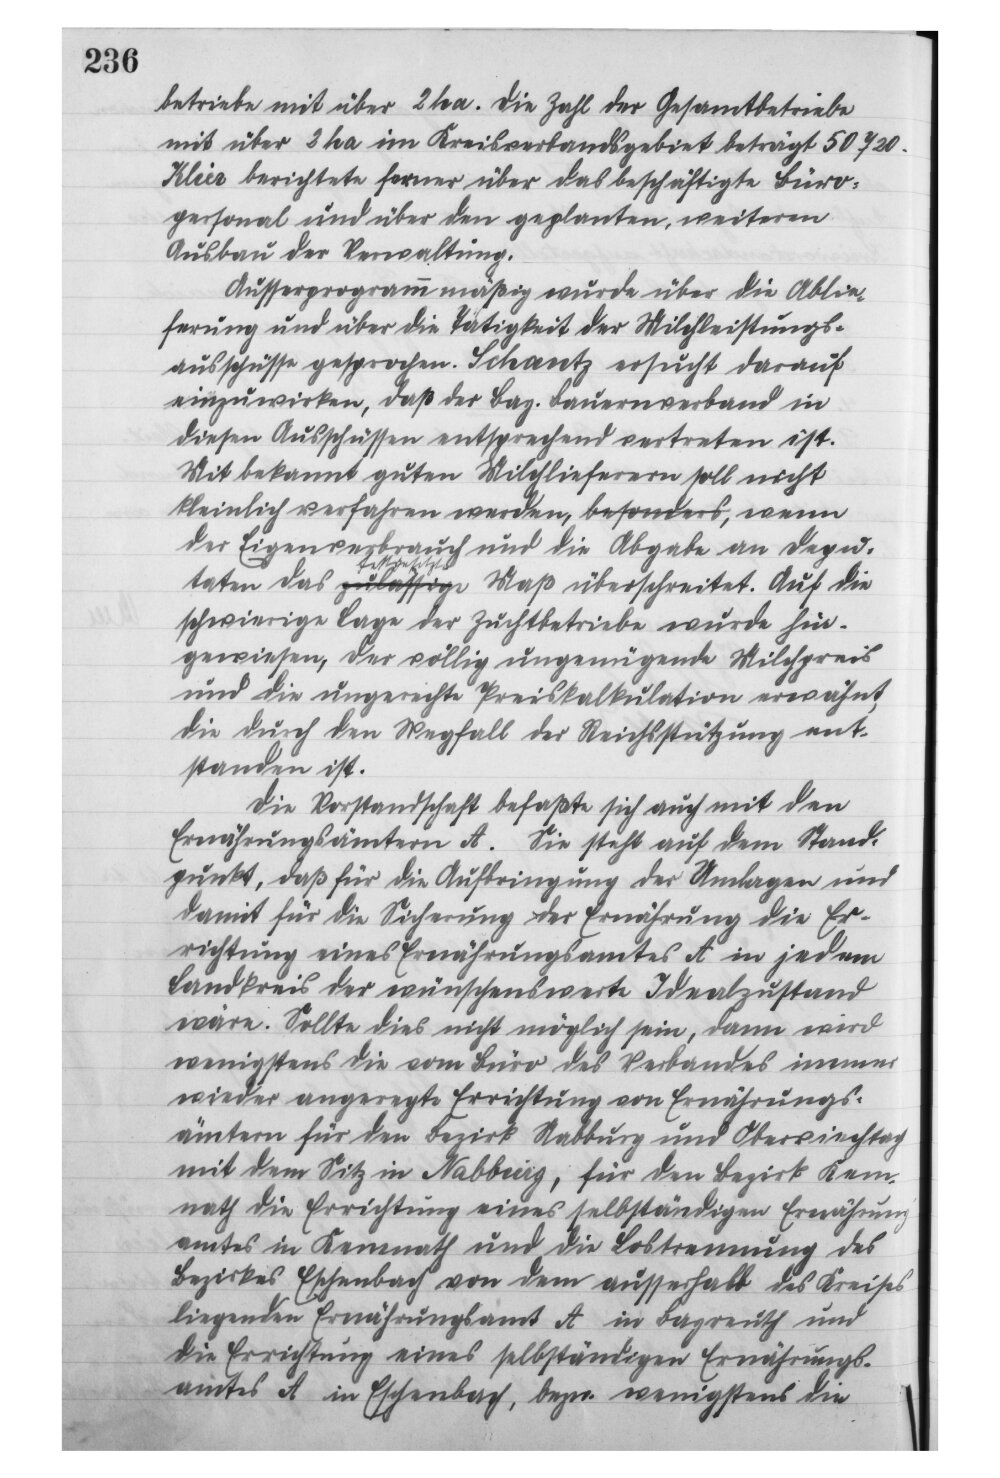 236
betriebe mit über 2 ha. Die Zahl der Gesamtbetriebe
mit über 2 ha im Kreisverbandsgebiet beträgt 50 720.
Klier berichtete ferner über das beschäftigte Büro-
personal und über den geplanten, weiteren
Ausbau der Verwaltung.
Ausserprogram̅mäßig wurde über die Ablie-
ferung und über die Tätigkeit der Milchleistungs-
ausschüsse gesprochen. Schantz ersucht darauf
einzuwirken, daß der Bay. Bauernverband in
diesen Ausschüssen entsprechend vertreten ist.
Mit bekannt guten Milchlieferern soll nicht
kleinlich verfahren werden, besonders, wenn
der Eigenverbrauch und die Abgabe an Depu-
festgesetzte
taten das zulässige Maß überschreitet. Auf die
schwierige Lage der Zuchtbetriebe wurde hin-
gewiesen, der völlig ungenügende Milchpreis
und die ungerechte Preiskalkulation erwähnt,
die durch den Wegfall der Reichsstützung ent-
standen ist.
Die Vorstandschaft befaßte sich auch mit den
Ernährungsämtern A. Sie steht auf dem Stand-
punkt, daß für die Aufbringung der Umlagen und
damit für die Sicherung der Ernährung die Er-
richtung eines Ernährungsamtes A in jedem
Landkreis der wünschenswerte Idealzustand
wäre. Sollte dies nicht möglich sein, dann wird
wenigstens die vom Büro des Verbandes immer
wieder angeregte Errichtung von Ernährungs-
ämtern für den Bezirk Nabburg und Oberviechtach
mit dem Sitz in Nabburg, für den Bezirk Kem-
nath die Errichtung eines selbständigen Ernährungs
amtes in Kemnath und die Lostrennung des
Bezirkes Eschenbach von dem ausserhalb des Kreises
liegenden Ernährungsamt A in Bayreuth und
die Errichtung eines selbständigen Ernährungs-
amtes A in Eschenbach, bezw. wenigstens die